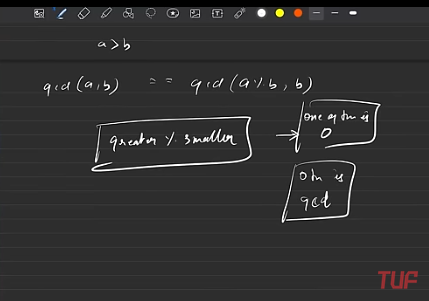 a > b
gcd (a, b) == gcd (a % b, b)
greater % smaller → one of tm is
0
Otr is
gcd
TUF